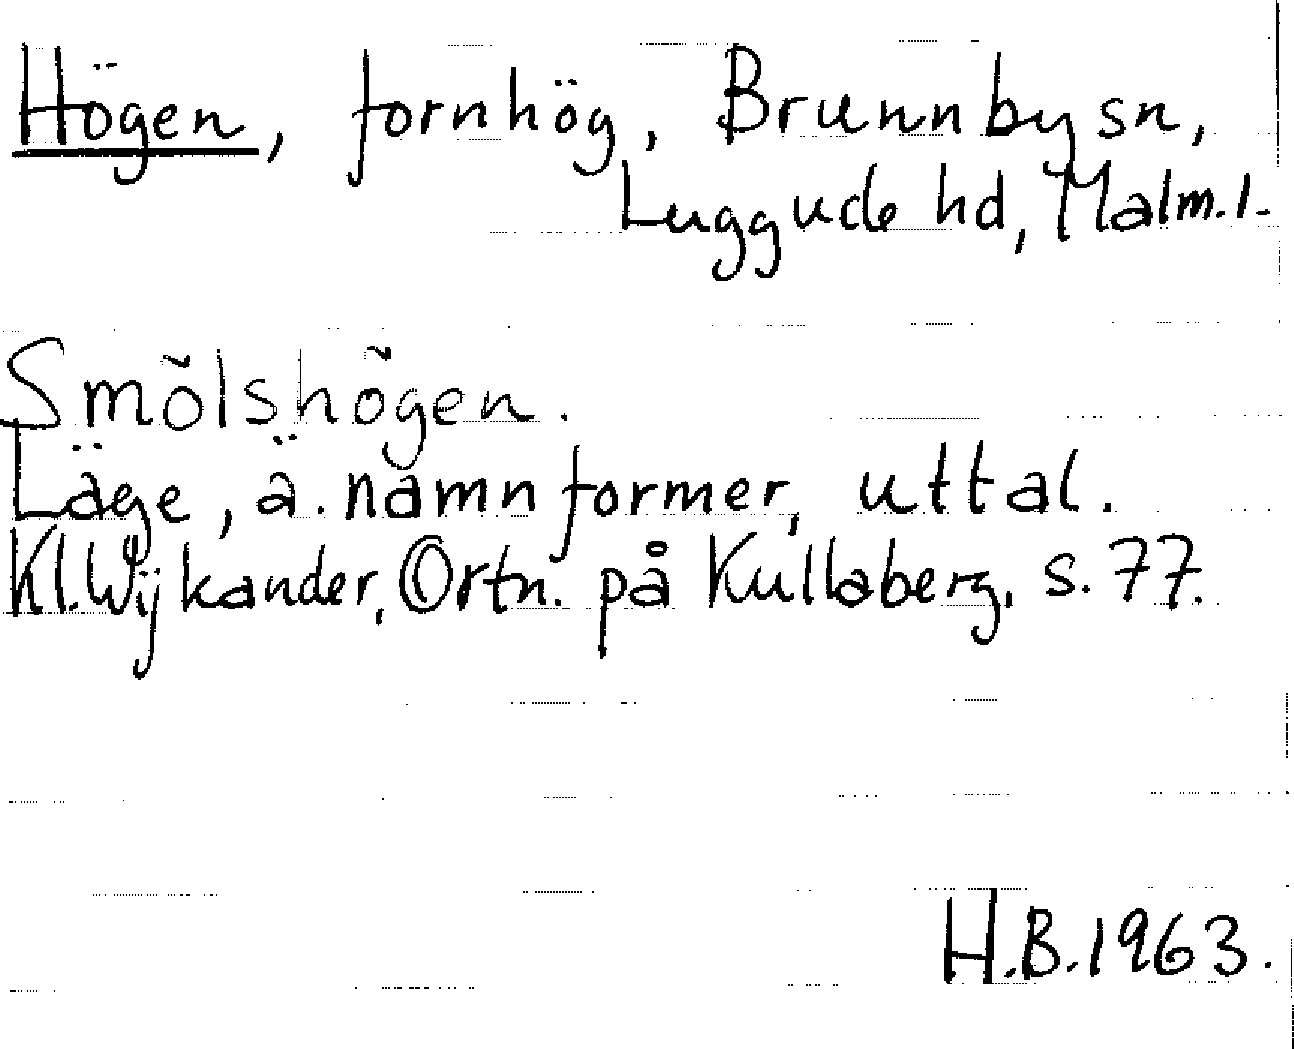 Högen, fornhög, Brunnby sn,
Luggude hd, Malm. l.
Smõlshõgen.
Läge, ä. namnformer, uttal.
Kl. Wijkander, Ortn. på Kullaberg, s. 77.
H.B. 1963.